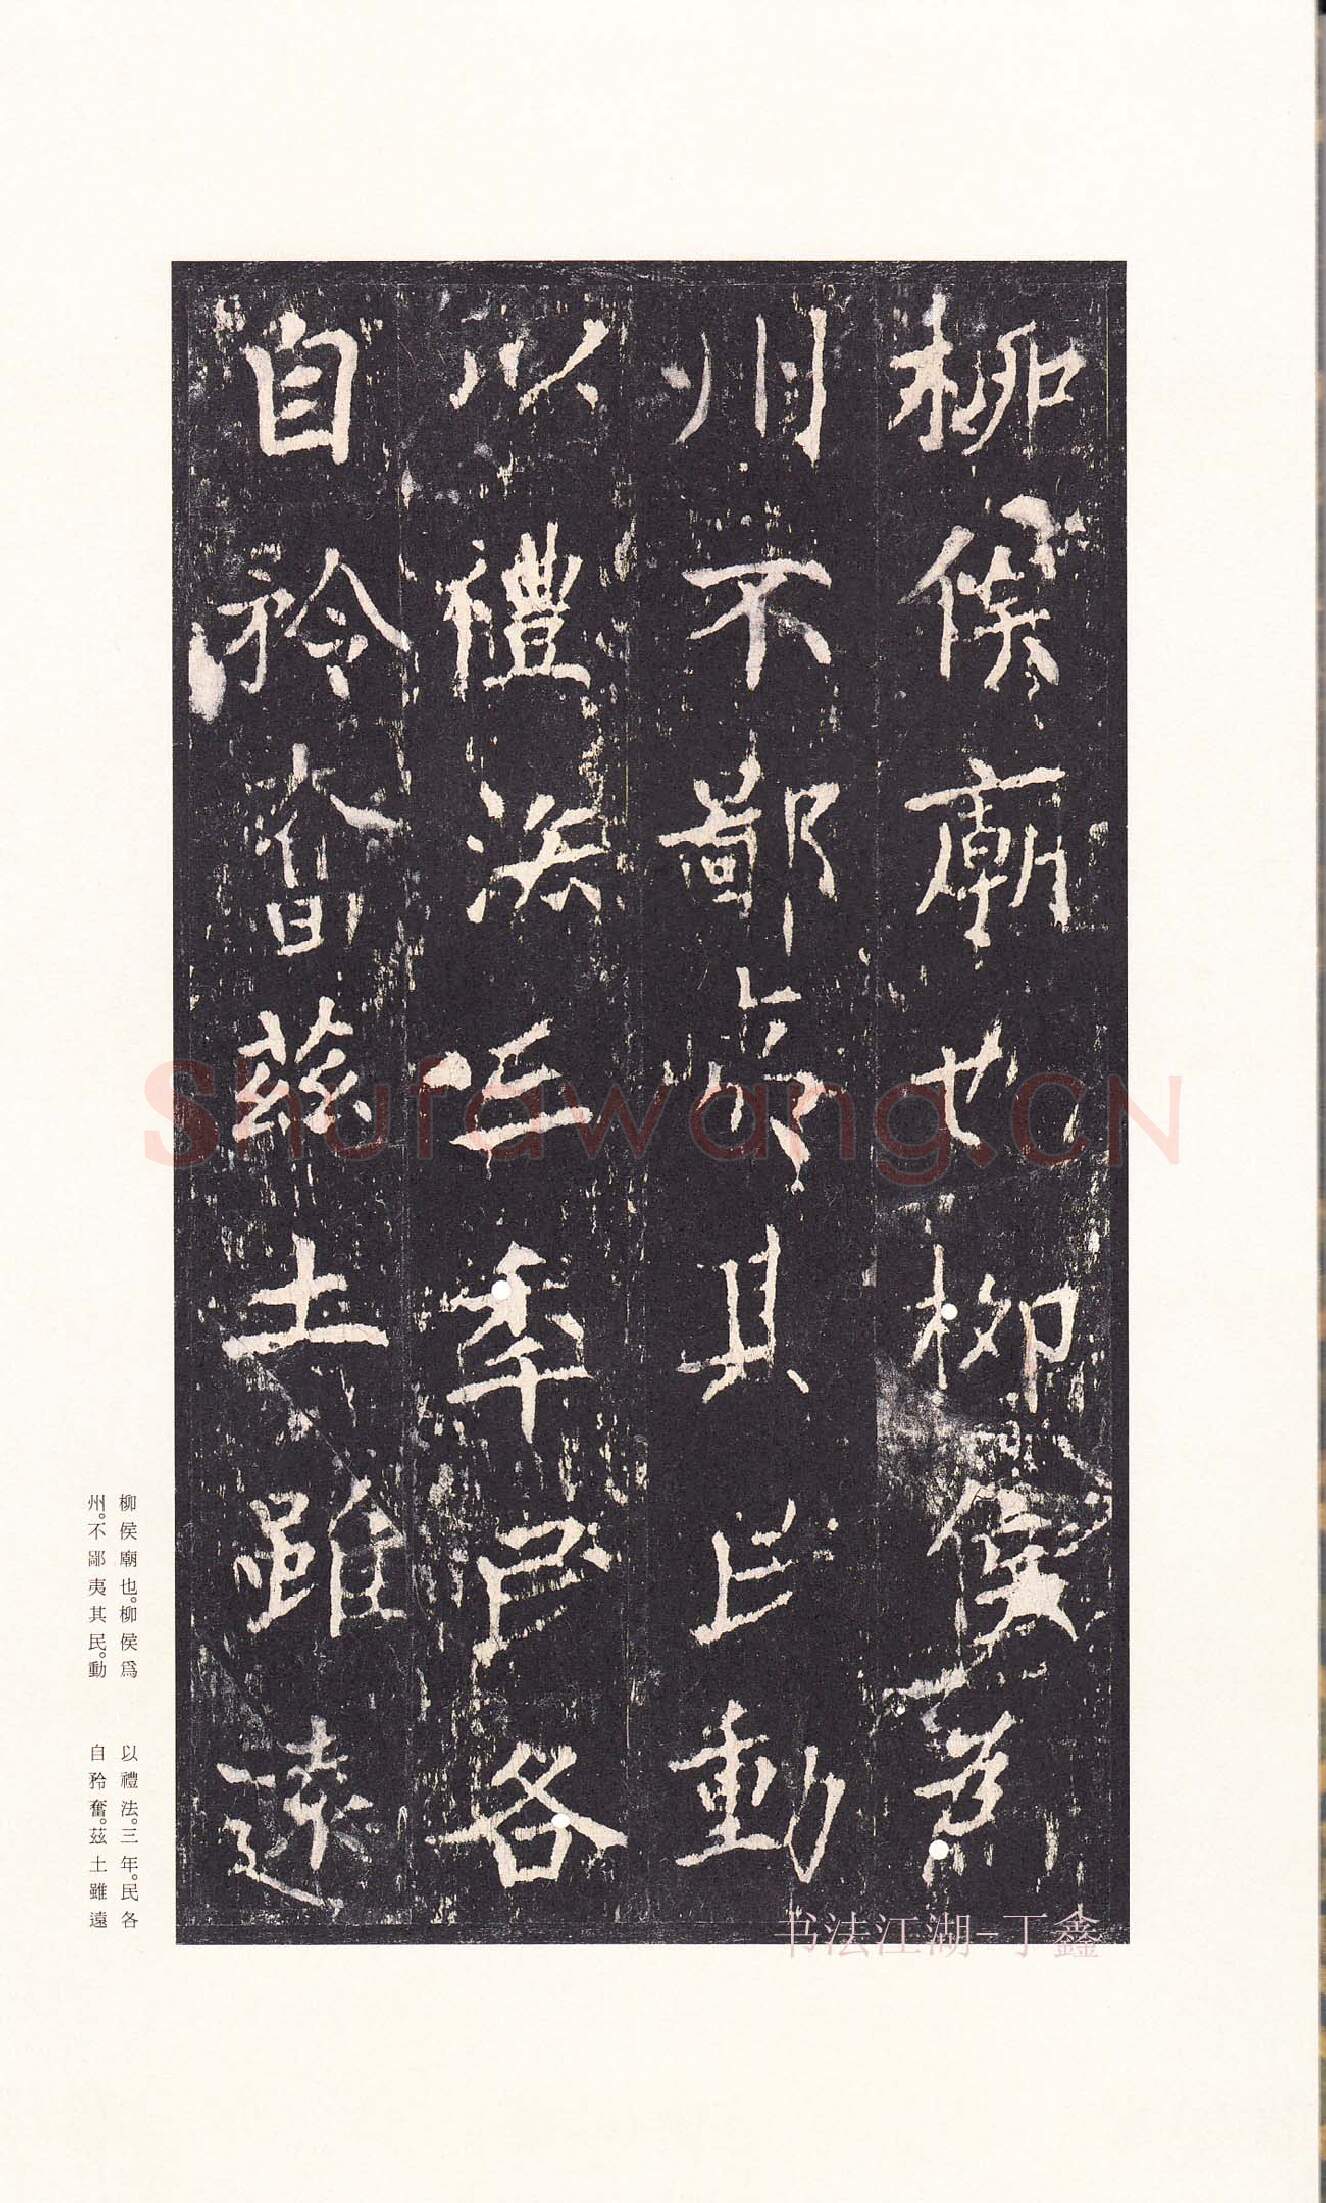 柳侯廟也柳侯為
州不鄙夷其民動
以禮法三年民各
自矜奮茲土雖遠
柳侯廟也。柳侯爲
州。不鄙夷其民。動
以禮法。三年。民各
自矜奮。茲土雖遠
Shufawang.CN
书法江湖-丁鑫